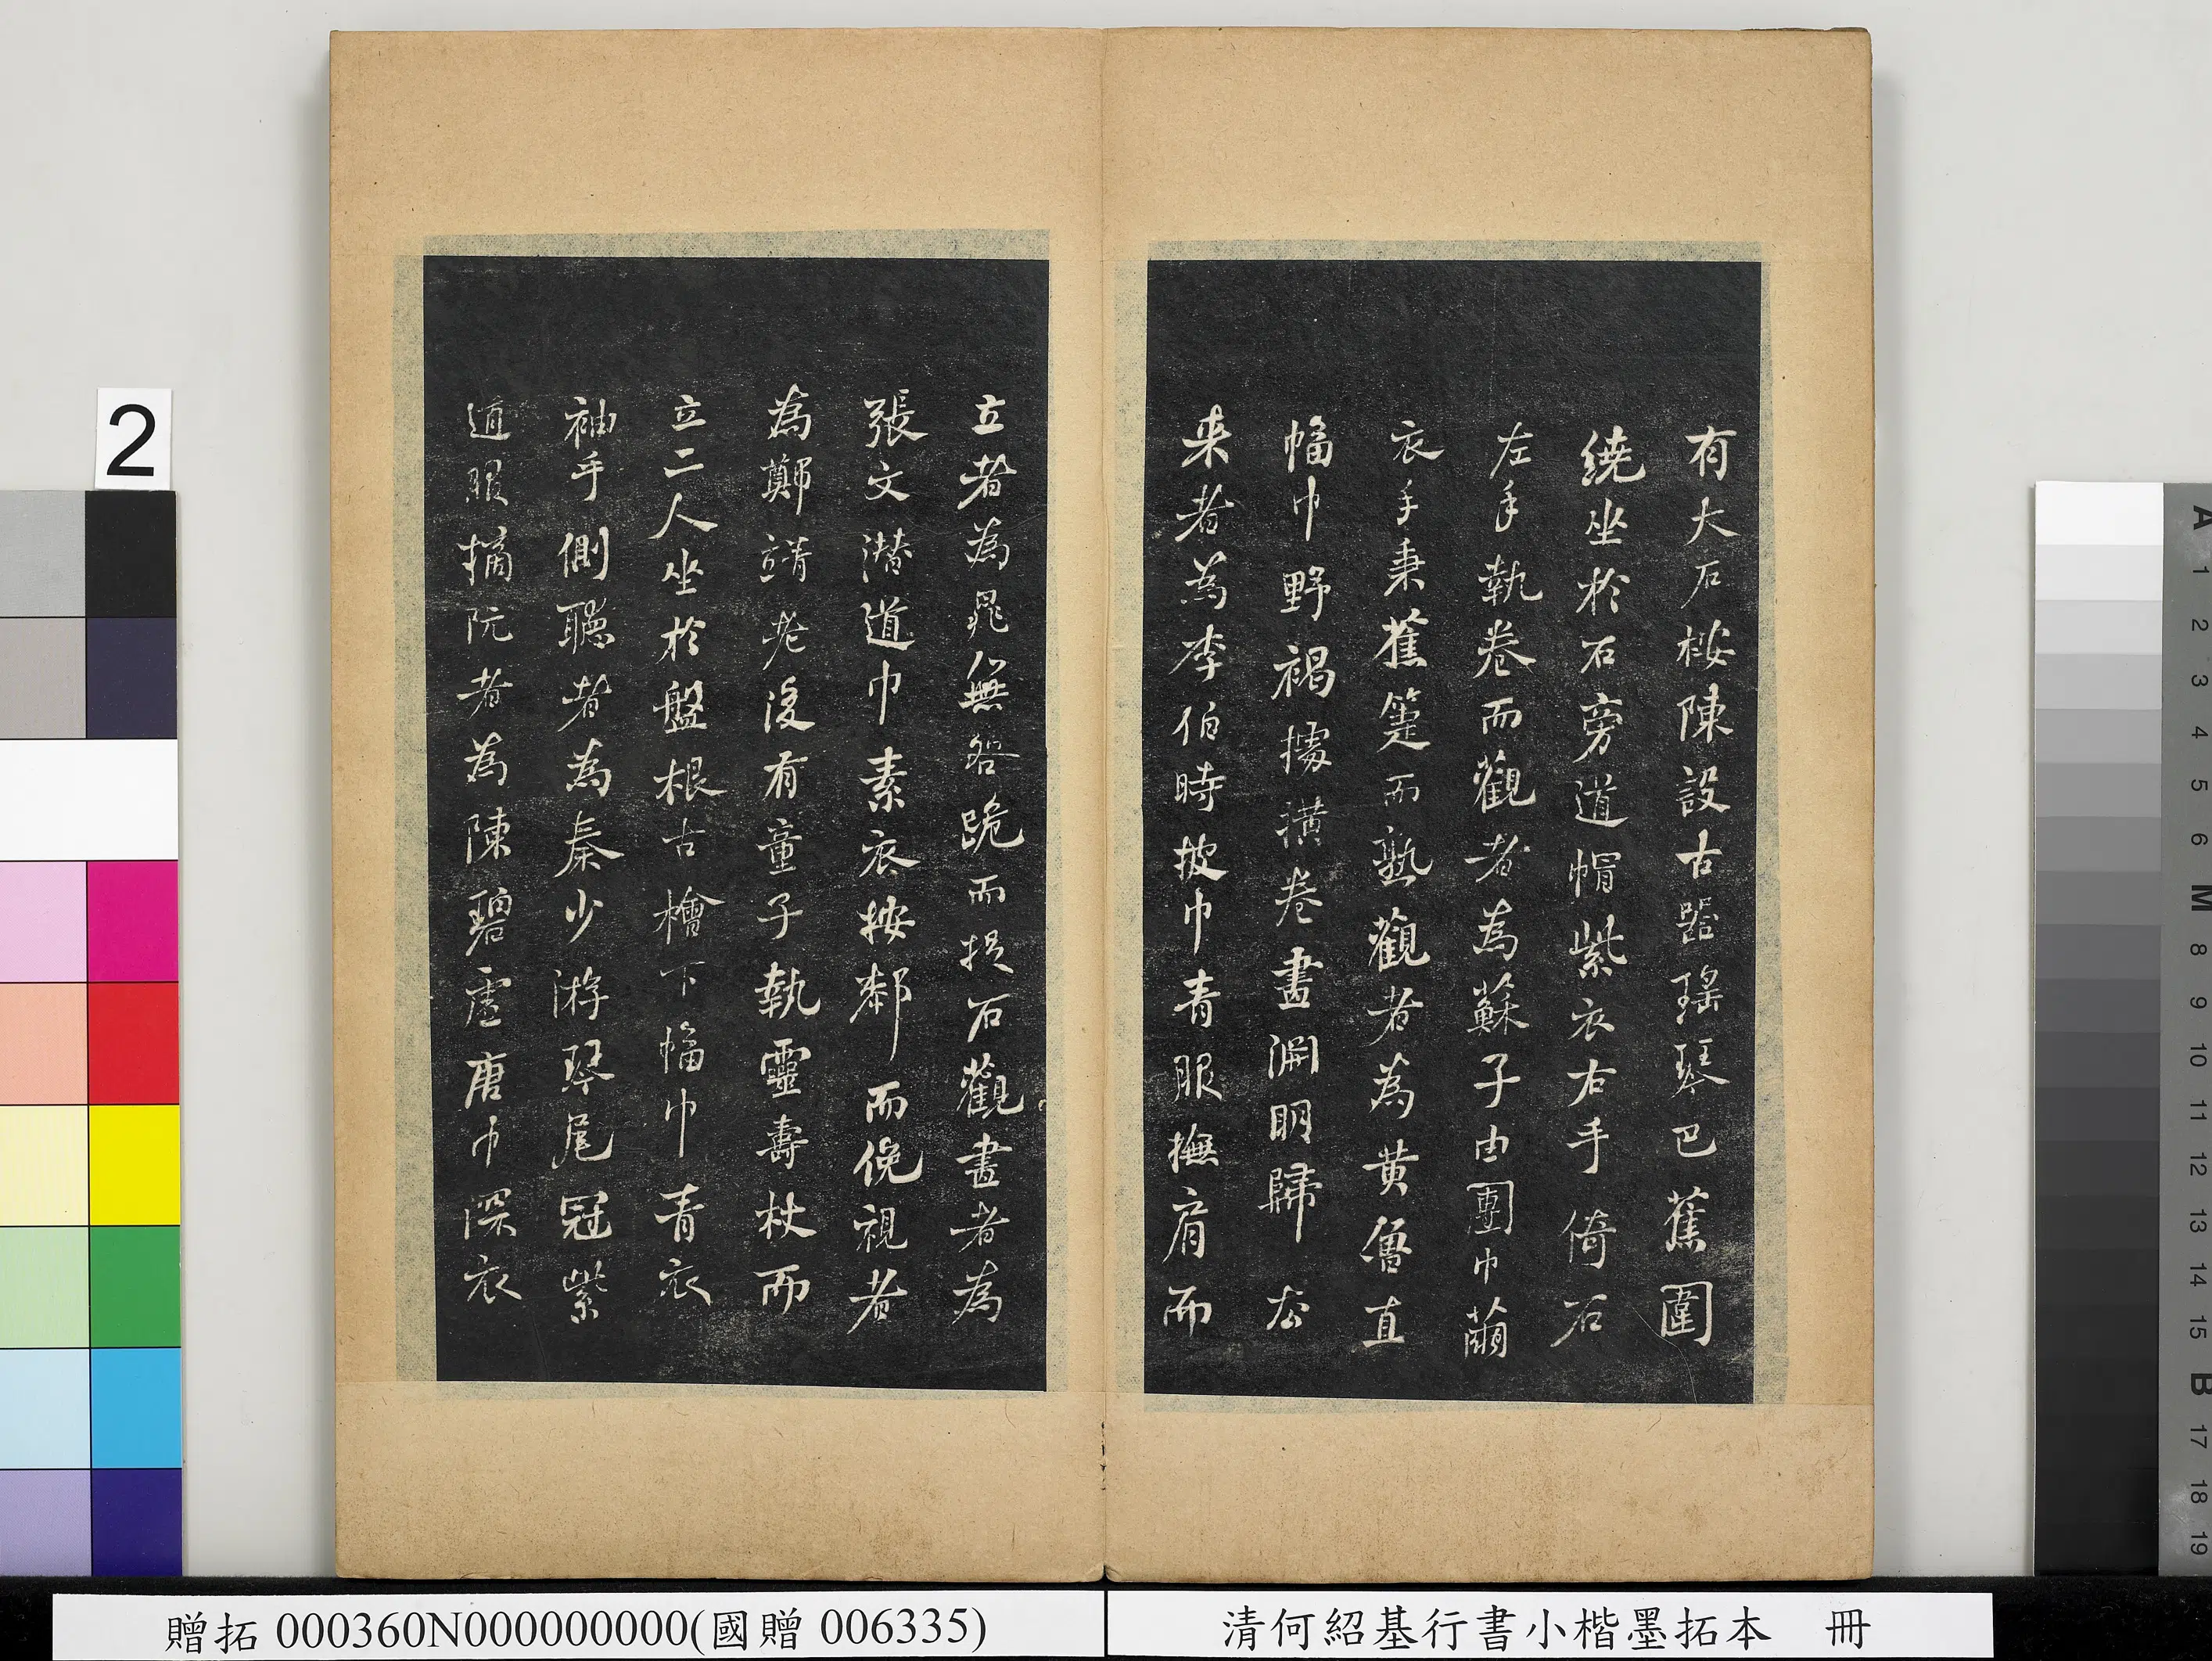 有大石桉陳設古器瑤琴巴蕉圍
繞坐於石旁道帽紫衣右手倚石
左手執卷而觀者為蘇子由團巾繭
衣手秉蕉箑而熟觀者為黃魯直
幅巾野褐據橫卷畫淵明歸去
来者為李伯時披巾青服撫肩而
立者為晁無咎跪而捉石觀畫者為
張文潛道巾素衣按厀而俛視者
為鄭靖老後有童子執靈壽杖而
立二人坐於盤根古檜下幅巾青衣
袖手側聽者為秦少游琴尾冠紫
道服摘阮者為陳碧虛唐巾深衣
贈拓 000360N000000000(國贈 006335)
清何紹基行書小楷墨拓本 冊
2
A 1 2 3 4 5 6 M 8 9 10 11 12 13 14 15 B 17 18 19